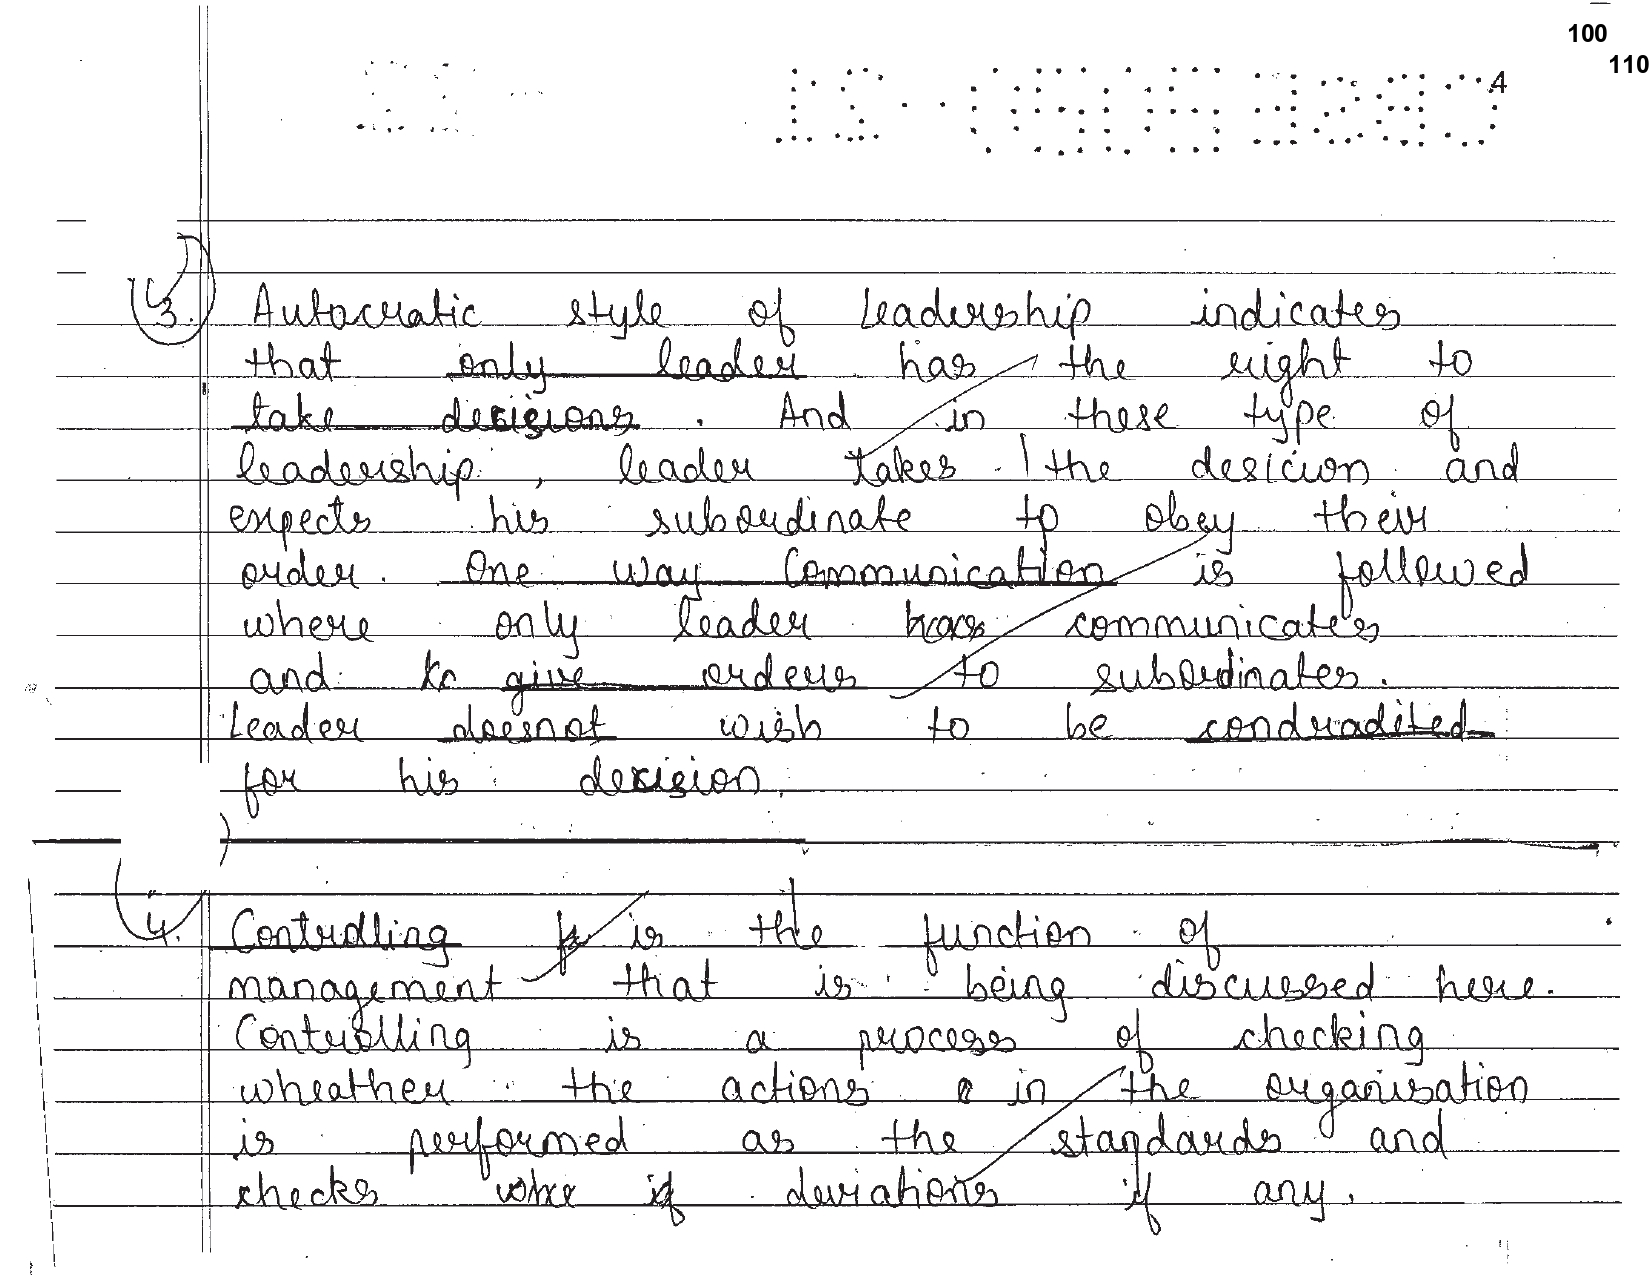 100
110
4
3. Autocratic style of leadership indicates
that only leader has the right to
take decisions. And in these type of
leadership, leader takes the desicion and
expects his subordinate to obey their
order. One way communication is followed
where only leader communicates
and give orders to subordinates.
Leader doesnot wish to be condradited
for his decision.
4. Controlling is the function of
management that is being discussed here.
Controlling is a process of checking
wheather the actions in the organisation
is performed as the standards and
checks deviations if any.